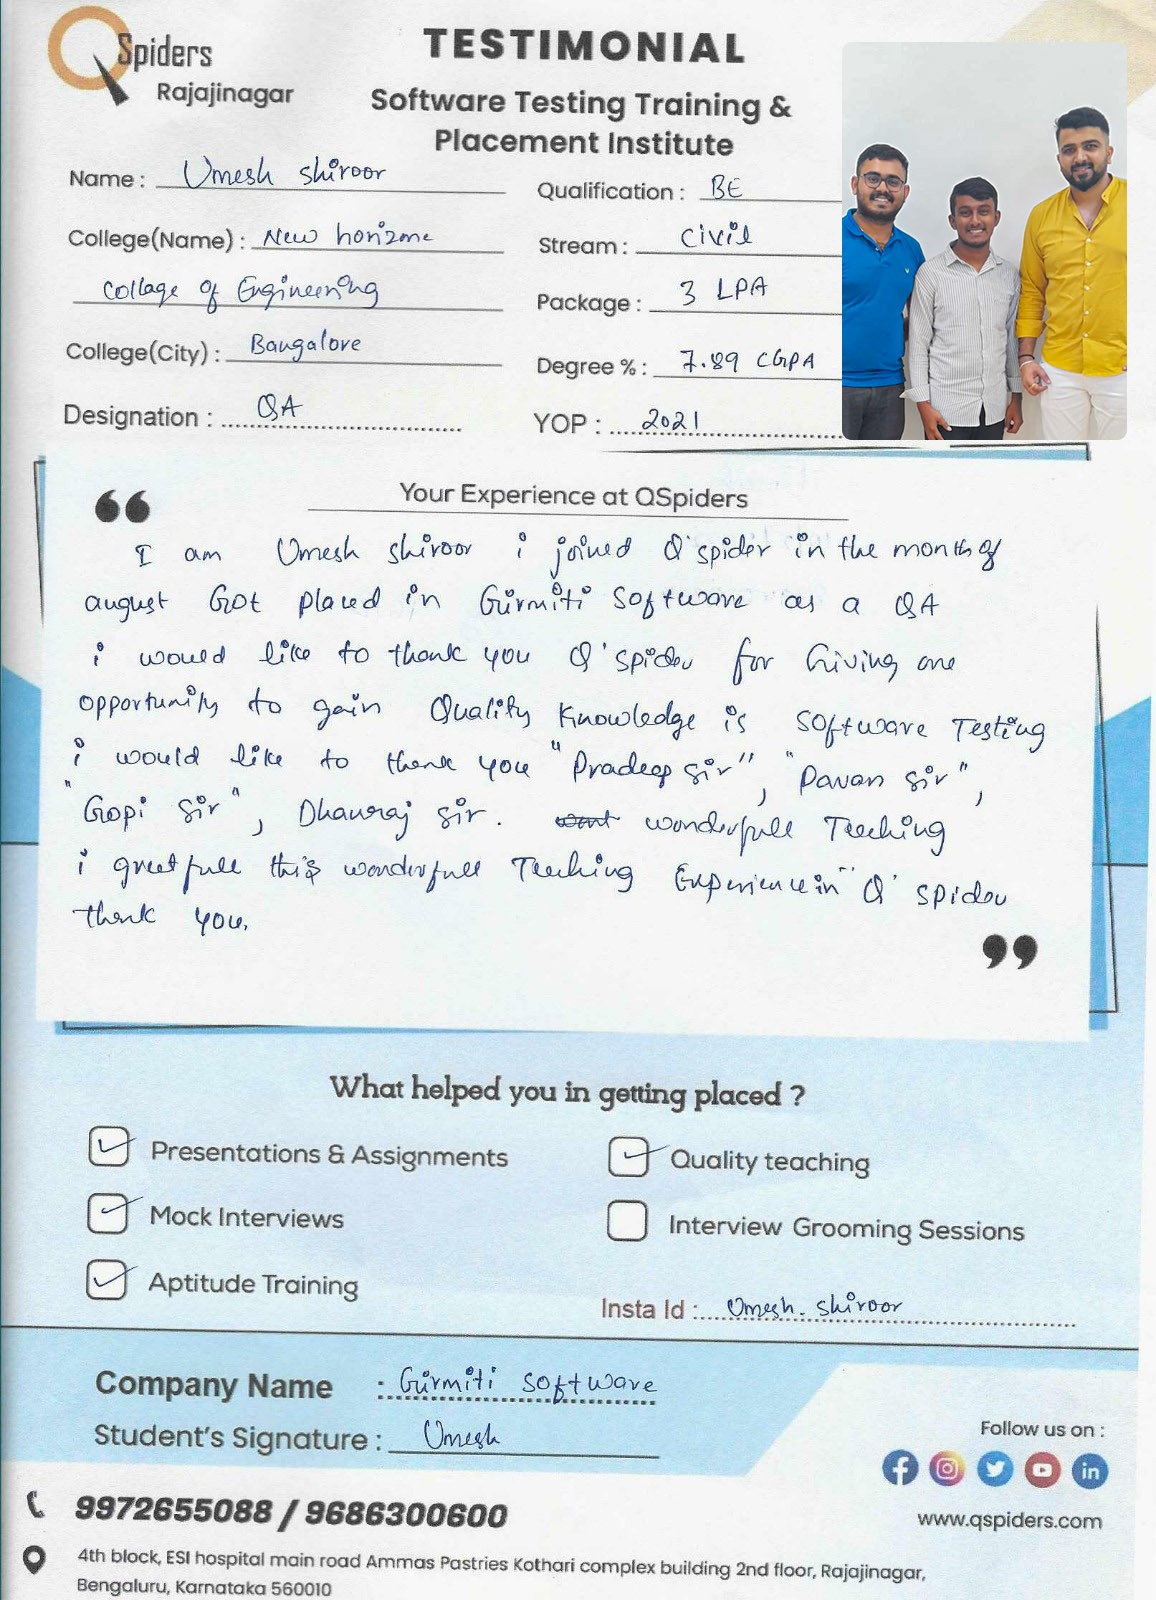 QSpiders
Rajajinagar
TESTIMONIAL
Software Testing Training &
Placement Institute
Name : Umesh shiroor
Qualification : BE
College(Name) : New horizone
collage of Engineering
Stream : civil
Package : 3 LPA
College(City) : Bangalore
Degree % : 7.89 CGPA
Designation : QA
YOP : 2021
Your Experience at QSpiders
I am Umesh shiroor i joined Q'spider in the month of
august Got placed in Girmiti software as a QA
i would like to thank you Q'spider for Giving one
opportunity to gain Quality Knowledge is software Testing
i would like to thank you "Pradeep sir", "Pavan sir",
"Gopi sir", Dhanraj sir. wonderfull Teeching
i greetfull this wonderfull Teeching Experience in Q'spider
thank you.
What helped you in getting placed ?
Presentations & Assignments
Quality teaching
Mock Interviews
Interview Grooming Sessions
Aptitude Training
Insta Id : Umesh. shiroor
Company Name : Girmiti software
Student's Signature : Umesh
Follow us on :
9972655088 / 9686300600
www.qspiders.com
4th block, ESI hospital main road Ammas Pastries Kothari complex building 2nd floor, Rajajinagar,
Bengaluru, Karnataka 560010